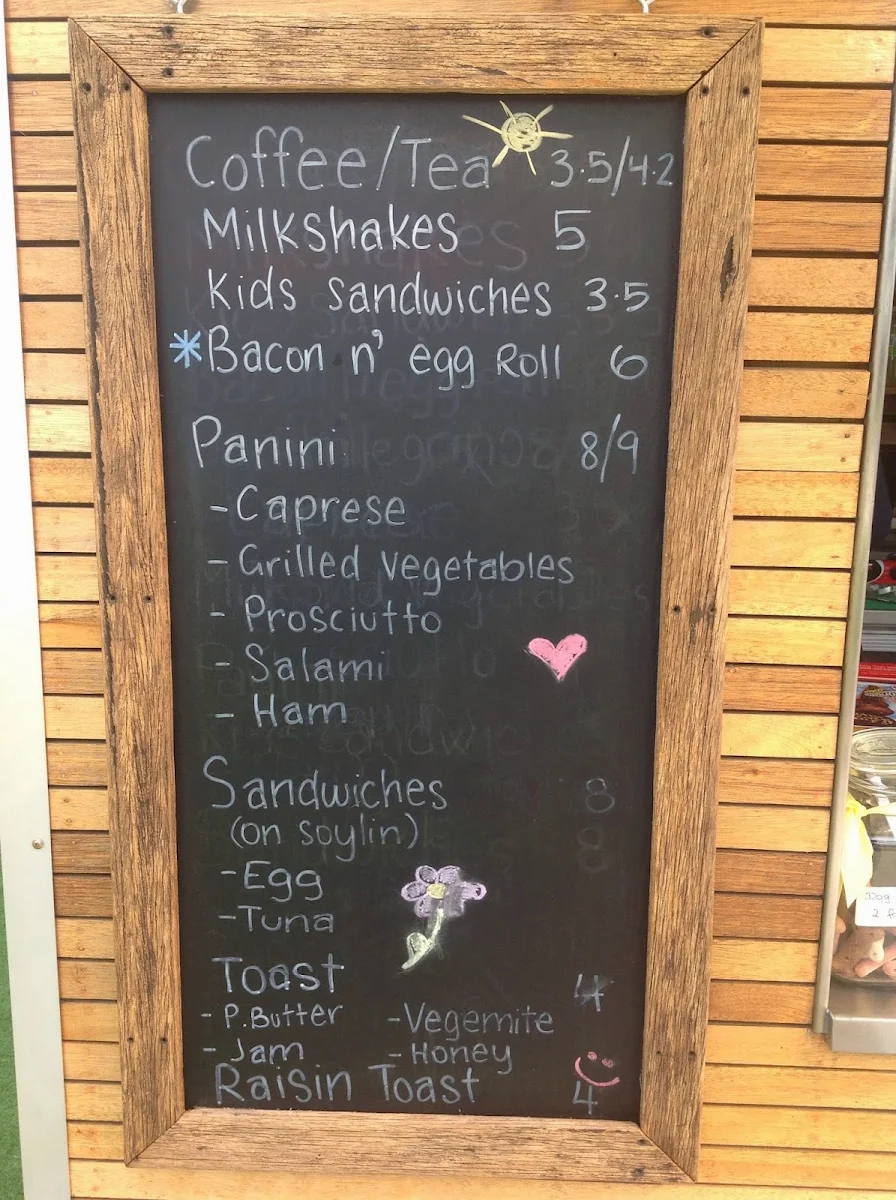 Coffee/Tea 3.5/4.2
Milkshakes 5
Kids sandwiches 3.5
*Bacon n' egg Roll 6
Panini 8/9
- Caprese
- Grilled vegetables
- Prosciutto
- Salami
- Ham
Sandwiches 8
(on soylin)
- Egg
- Tuna
Toast 4
- P.Butter - Vegemite
- Jam - Honey
Raisin Toast 4
Dog